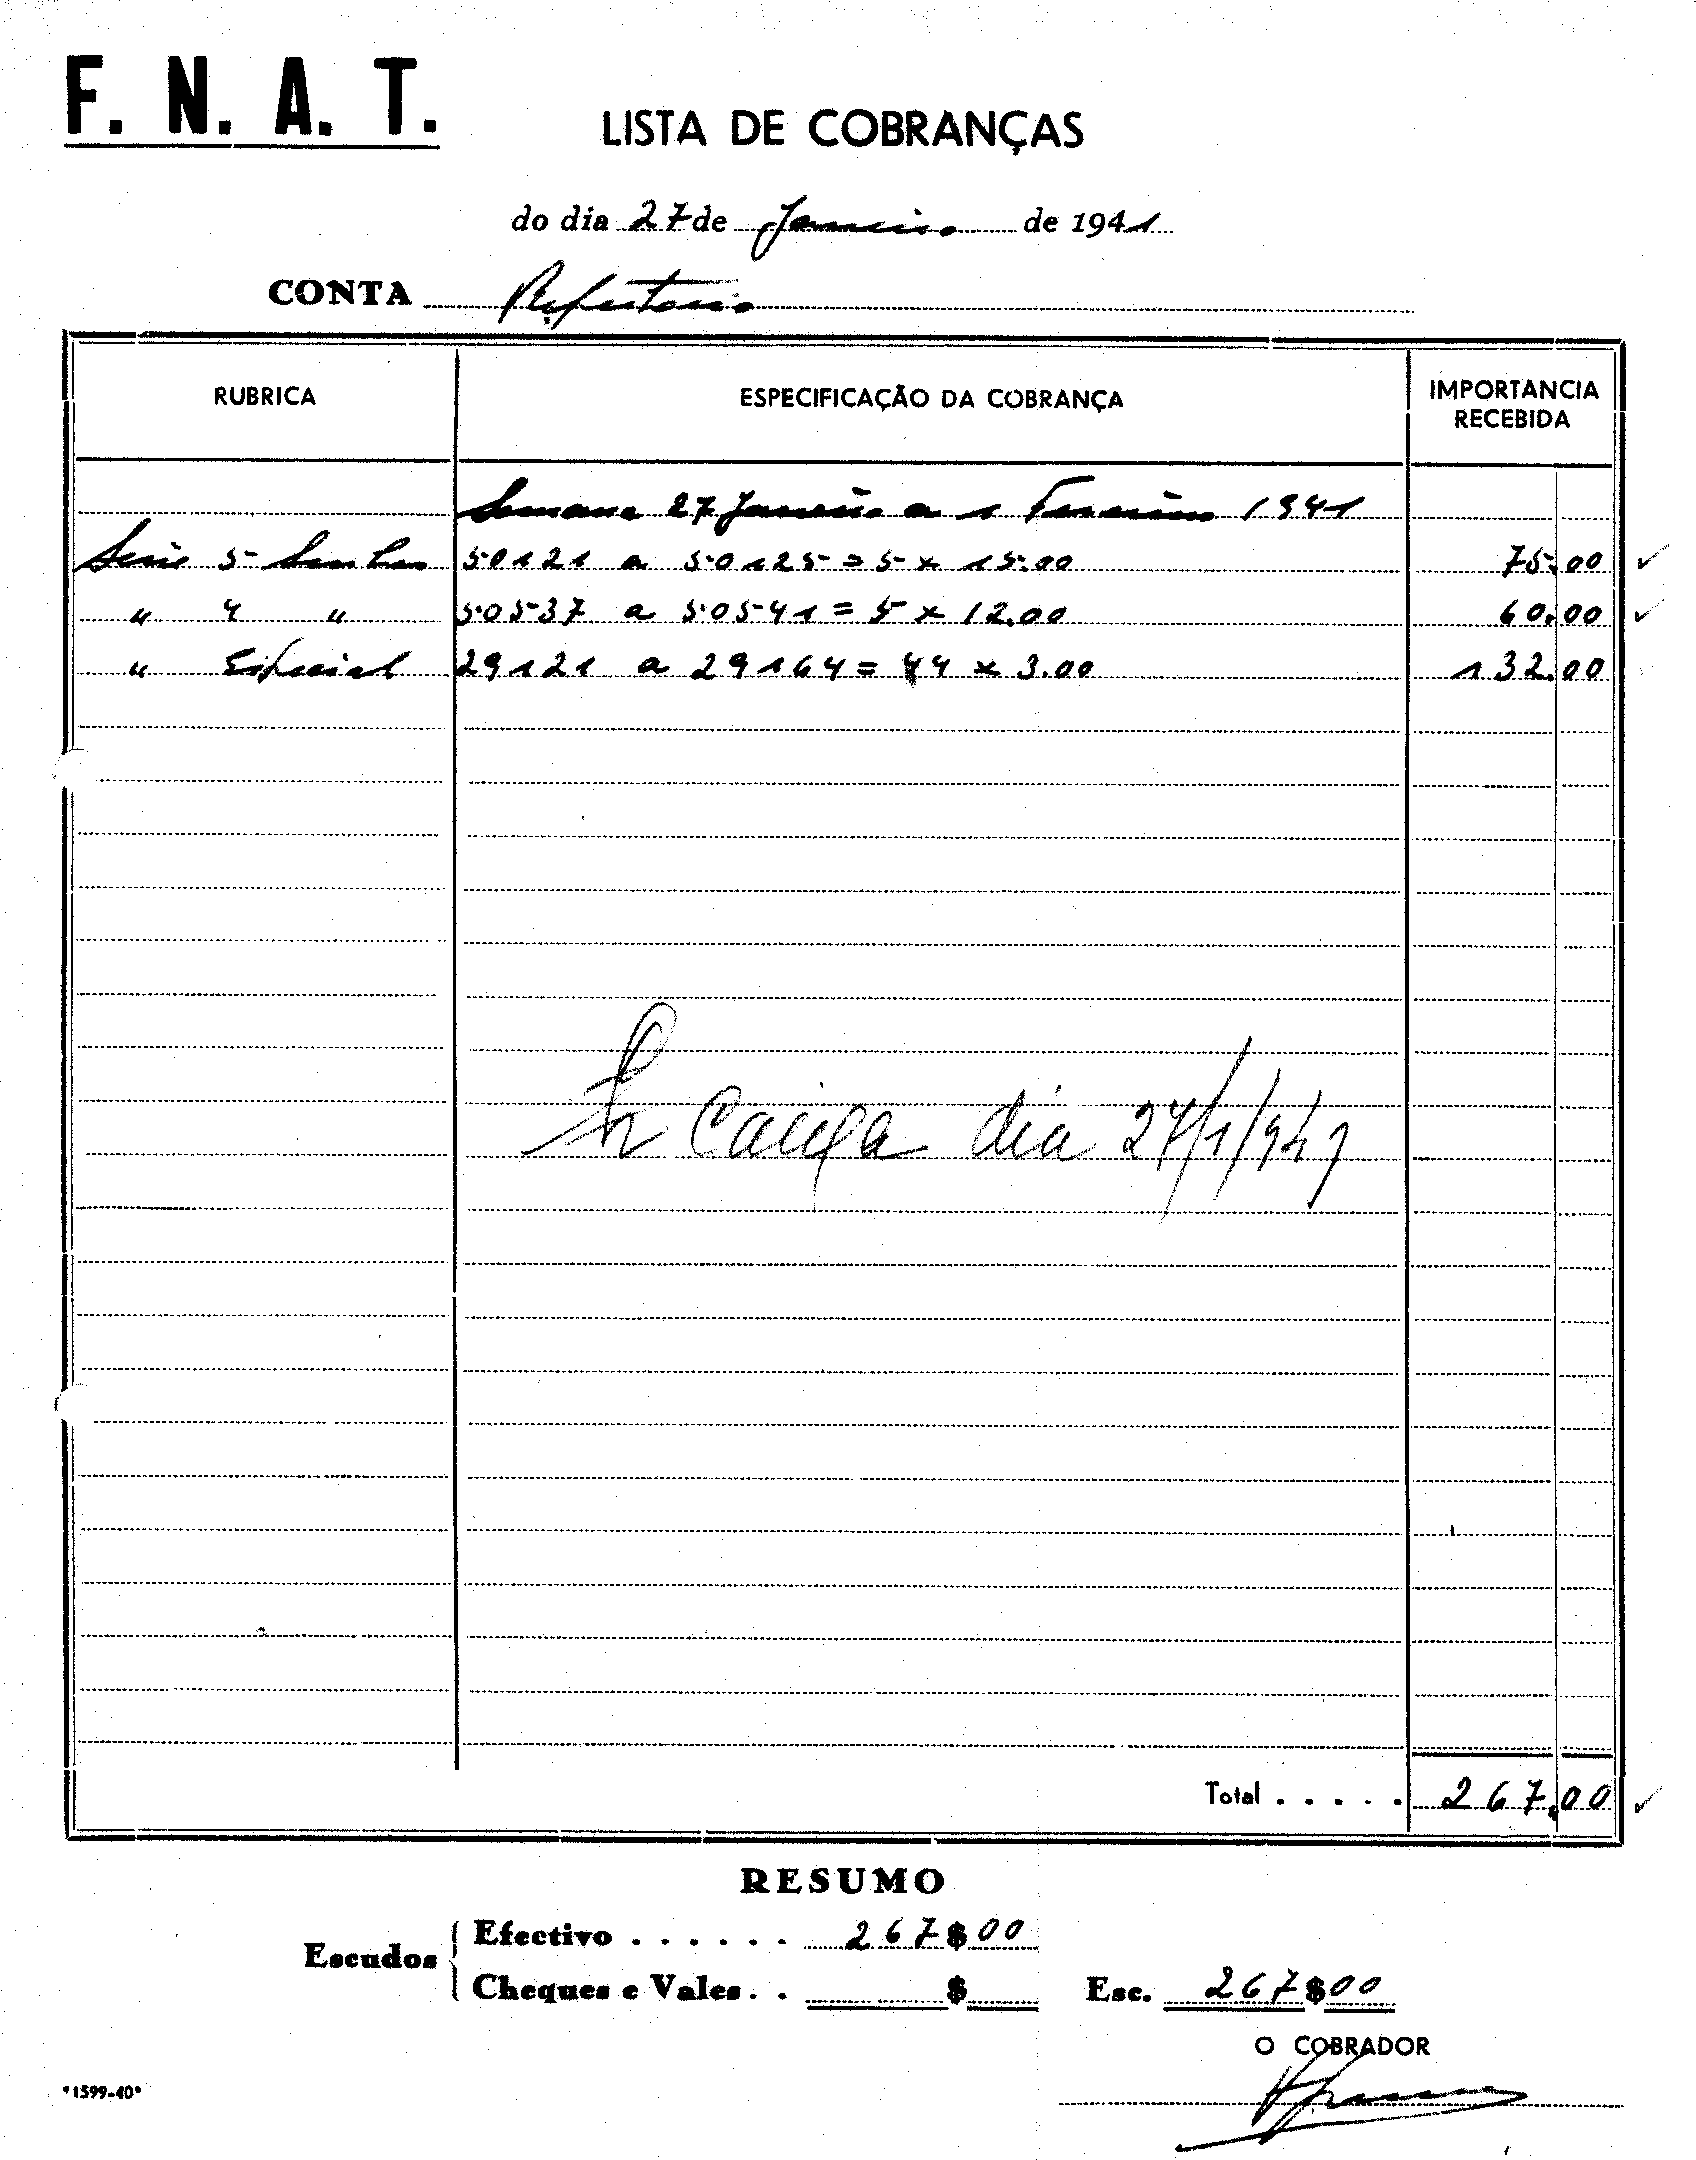 F. N. A. T.
LISTA DE COBRANÇAS
do dia 27 de Janeiro de 1941
CONTA Refeitorio
RUBRICA ESPECIFICAÇÃO DA COBRANÇA IMPORTANCIA RECEBIDA
Semana 27 Janeiro a 1 Fevereiro 1941
Serie 5 Senhas 50121 a 50125 = 5 x 15.00 75.00
" 4 " 50537 a 50541 = 5 x 12.00 60.00
" Especial 29121 a 29164 = 44 x 3.00 132.00
Caixa dia 27/1/941
Total . . . . . 267.00
RESUMO
Escudos
Efectivo . . . . . . 267$00
Cheques e Vales . . $ Esc. 267$00
O COBRADOR
"1599-40"